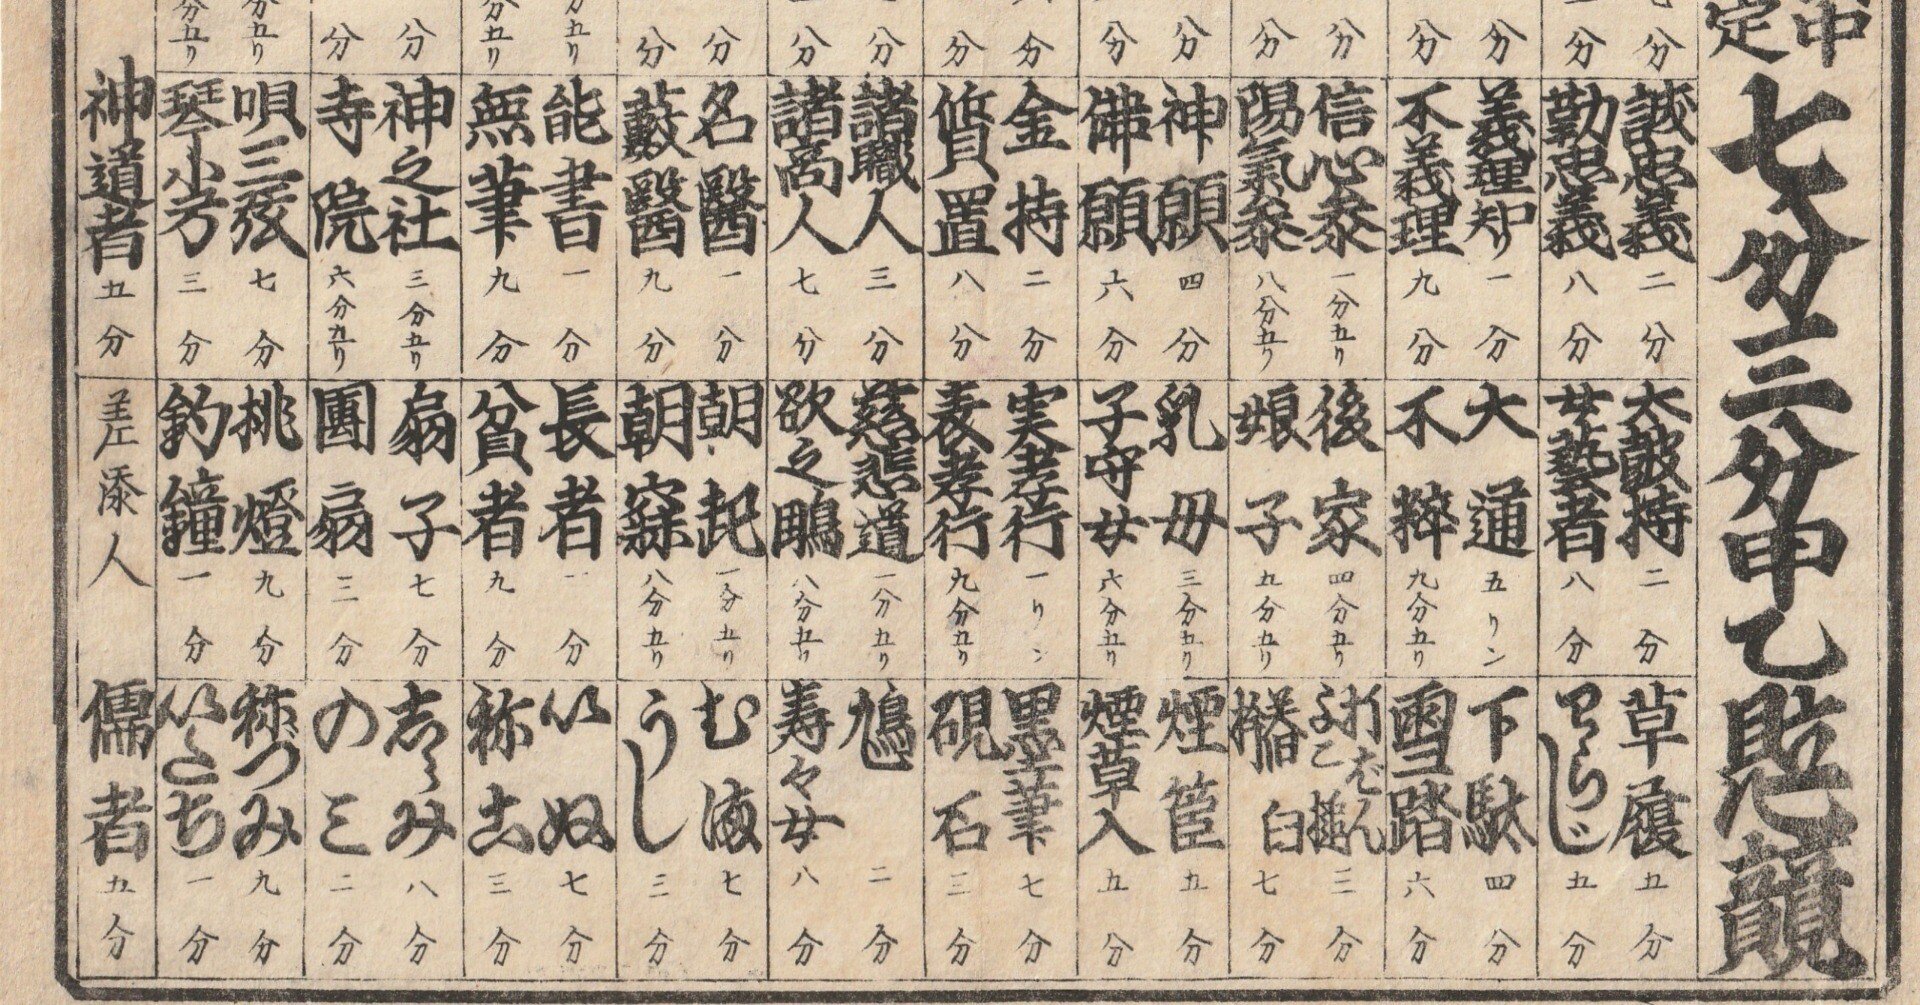 中
定
七分三分甲乙競
誠忠義 二分
勤忠義 八分
義理知り 一分
不義理 九分
信心参 一分五り
陽氣参 八分五り
神願 四分
佛願 六分
金持 二分
質置 八分
諸職人 三分
諸商人 七分
名醫 一分
藪醫 九分
能書 一分
無筆 九分
神之社 三分五り
寺院 六分五り
唄三弦 七分
琴小弓 三分
神道者 五分
太皷持 二分
女藝者 八分
大通 五リン
不粋 九分五り
後家 四分五り
娘子 五分五り
乳母 三分五り
子守女 六分五り
実孝行 一リン
表孝行 九分五り
慈悲道 一分五り
欲之鵰 八分五り
朝起 一分五り
朝寐 八分五り
長者 一分
貧者 九分
扇子 七分
團扇 三分
桃燈 九分
釣鐘 一分
差添人
草履 五分
わらじ 五分
下駄 四分
雪踏 六分
三分
臼 七分
煙管 五分
煙草入 五分
墨筆 七分
硯石 三分
鳩 二分
寿々女 八分
むま 七分
うし 三分
いぬ 七分
祢こ 三分
志らみ 八分
のミ 二分
祢づみ 九分
いたち 一分
儒者 五分